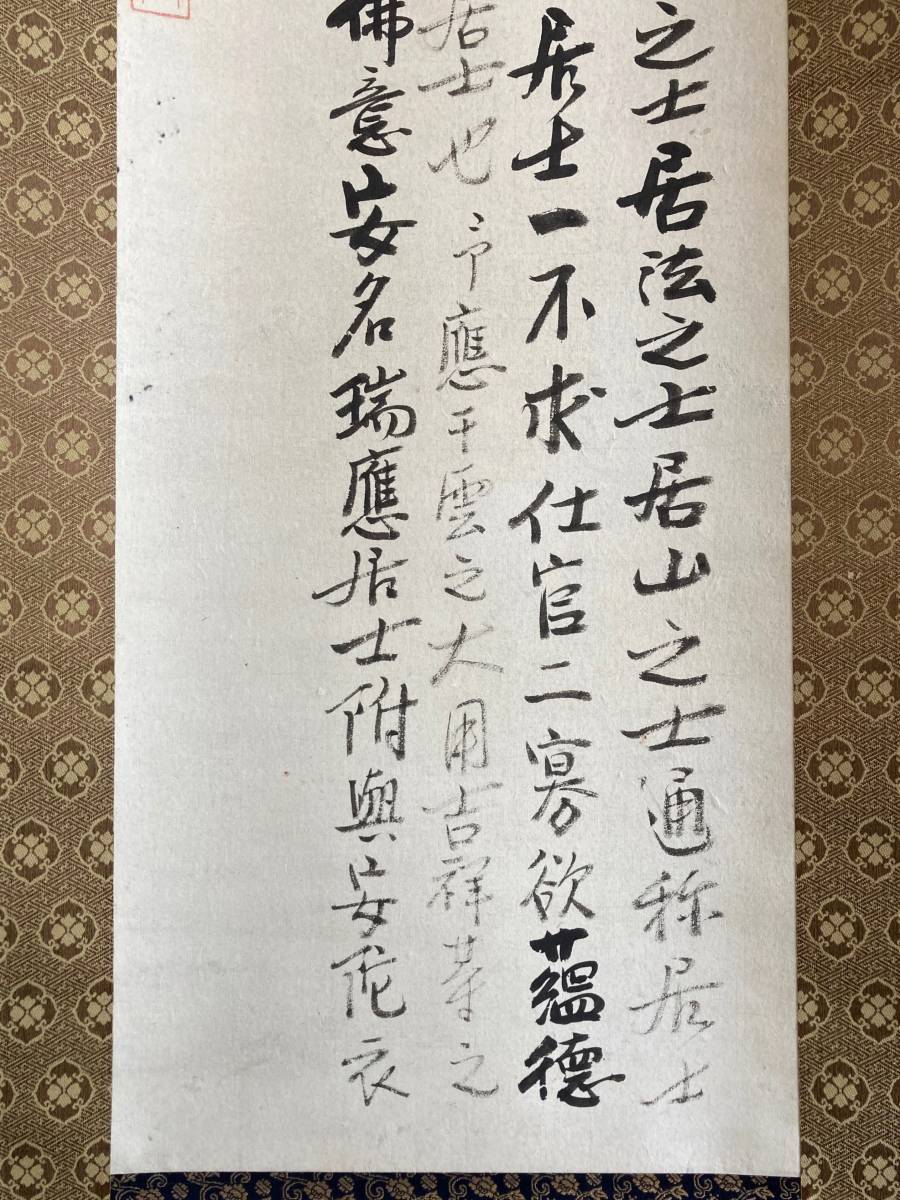 之士居法之士居山之士通称居士
居士一不求仕官二寡欲蘊德
居士也予應干雲之大用吉祥草之
佛意安名瑞應居士附與安陀衣